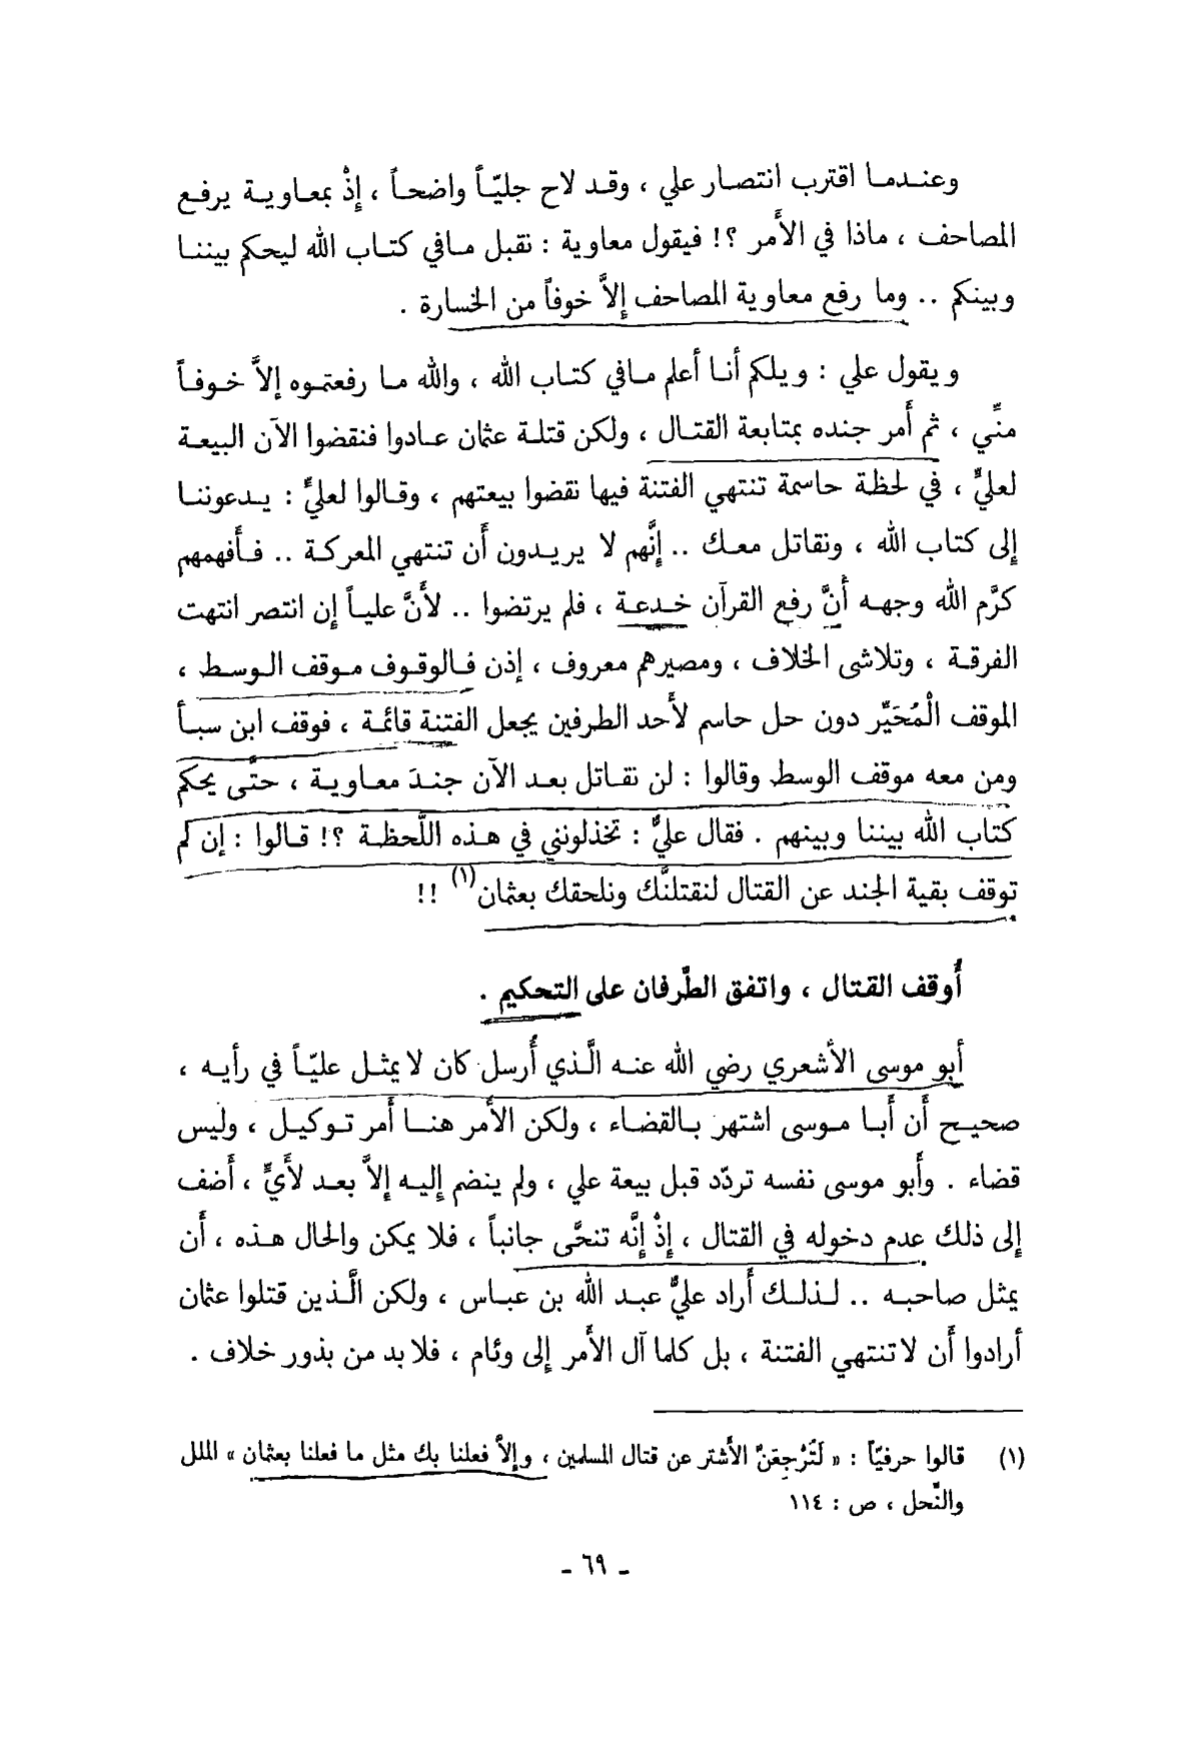 وعندما اقترب انتصار علي ، وقد لاح جليّاً واضحاً ، إذْ بمعاوية يرفع
المصاحف ، ماذا في الأَمر ؟! فيقول معاوية : نقبل مافي كتاب الله ليحكم بيننا
وبينكم .. وما رفع معاوية المصاحف إلاَّ خوفاً من الخسارة .
ويقول علي : ويلكم أنا أعلم مافي كتاب الله ، والله ما رفعتموه إلاَّ خوفاً
منِّي ، ثم أَمر جنده بمتابعة القتال ، ولكن قتلة عثمان عادوا فنقضوا الآن البيعة
لعليٍّ ، في لحظة حاسمة تنتهي الفتنة فيها نقضوا بيعتهم ، وقالوا لعليٍّ : يدعوننا
إلى كتاب الله ، ونقاتل معك .. إنَّهم لا يريدون أَن تنتهي المعركة .. فأَفهمهم
كرَّم الله وجهه أَنَّ رفع القرآن خدعة ، فلم يرتضوا .. لأَنَّ علياً إن انتصر انتهت
الفرقة ، وتلاشى الخلاف ، ومصيرهم معروف ، إذن فالوقوف موقف الوسط ،
الموقف الْمُحَيِّر دون حل حاسم لأَحد الطرفين يجعل الفتنة قائمة ، فوقف ابن سبأ
ومن معه موقف الوسط وقالوا : لن نقاتل بعد الآن جندَ معاوية ، حتَّى يحكم
كتاب الله بيننا وبينهم . فقال عليٌّ : تخذلونني في هذه اللَّحظة ؟! قالوا : إن لم
توقف بقية الجند عن القتال لنقتلنَّك ونلحقك بعثمان(١) !!
أُوقف القتال ، واتفق الطَّرفان على التحكيم .
أَبو موسى الأشعري رضي الله عنه الَّذي أُرسل كان لا يمثل عليّاً في رأيه ،
صحيح أَن أَبا موسى اشتهر بالقضاء ، ولكن الأَمر هنا أَمر توكيل ، وليس
قضاء . وأَبو موسى نفسه تردّد قبل بيعة علي ، ولم ينضم إليه إلاَّ بعد لأَيٍّ ، أَضف
إلى ذلك عدم دخوله في القتال ، إذْ إنَّه تنحَّى جانباً ، فلا يمكن والحال هذه ، أَن
يمثل صاحبه .. لذلك أَراد عليٌّ عبد الله بن عباس ، ولكن الَّذين قتلوا عثمان
أرادوا أَن لا تنتهي الفتنة ، بل كلما آل الأَمر إلى وئام ، فلا بد من بذور خلاف .
(١) قالوا حرفيّاً : « لَتُرْجِعَنَّ الأَشتر عن قتال المسلمين ، وإلاَّ فعلنا بك مثل ما فعلنا بعثمان » الملل
والنِّحل ، ص : ١١٤
- ٦٩ -